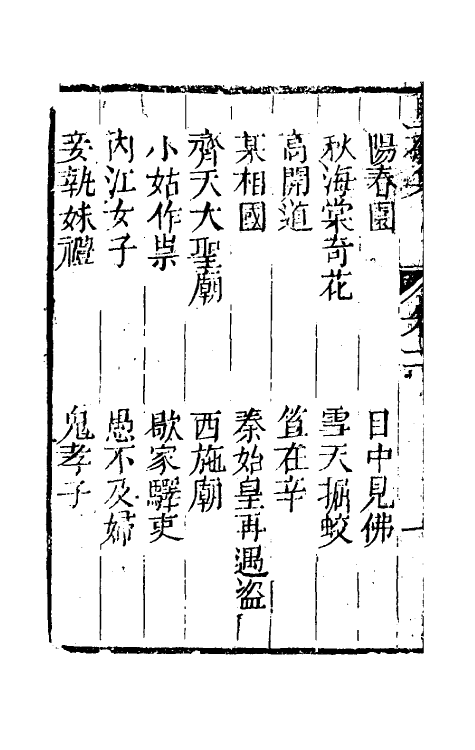 陽春園　目中見佛
秋海棠奇花　雪天掘蛟
高開道　笪在辛
某相國　秦始皇再遇盜
齊天大聖廟　西施廟
小姑作祟　歇家驛吏
內江女子　愚不及婦
妾執妹禮　鬼孝子